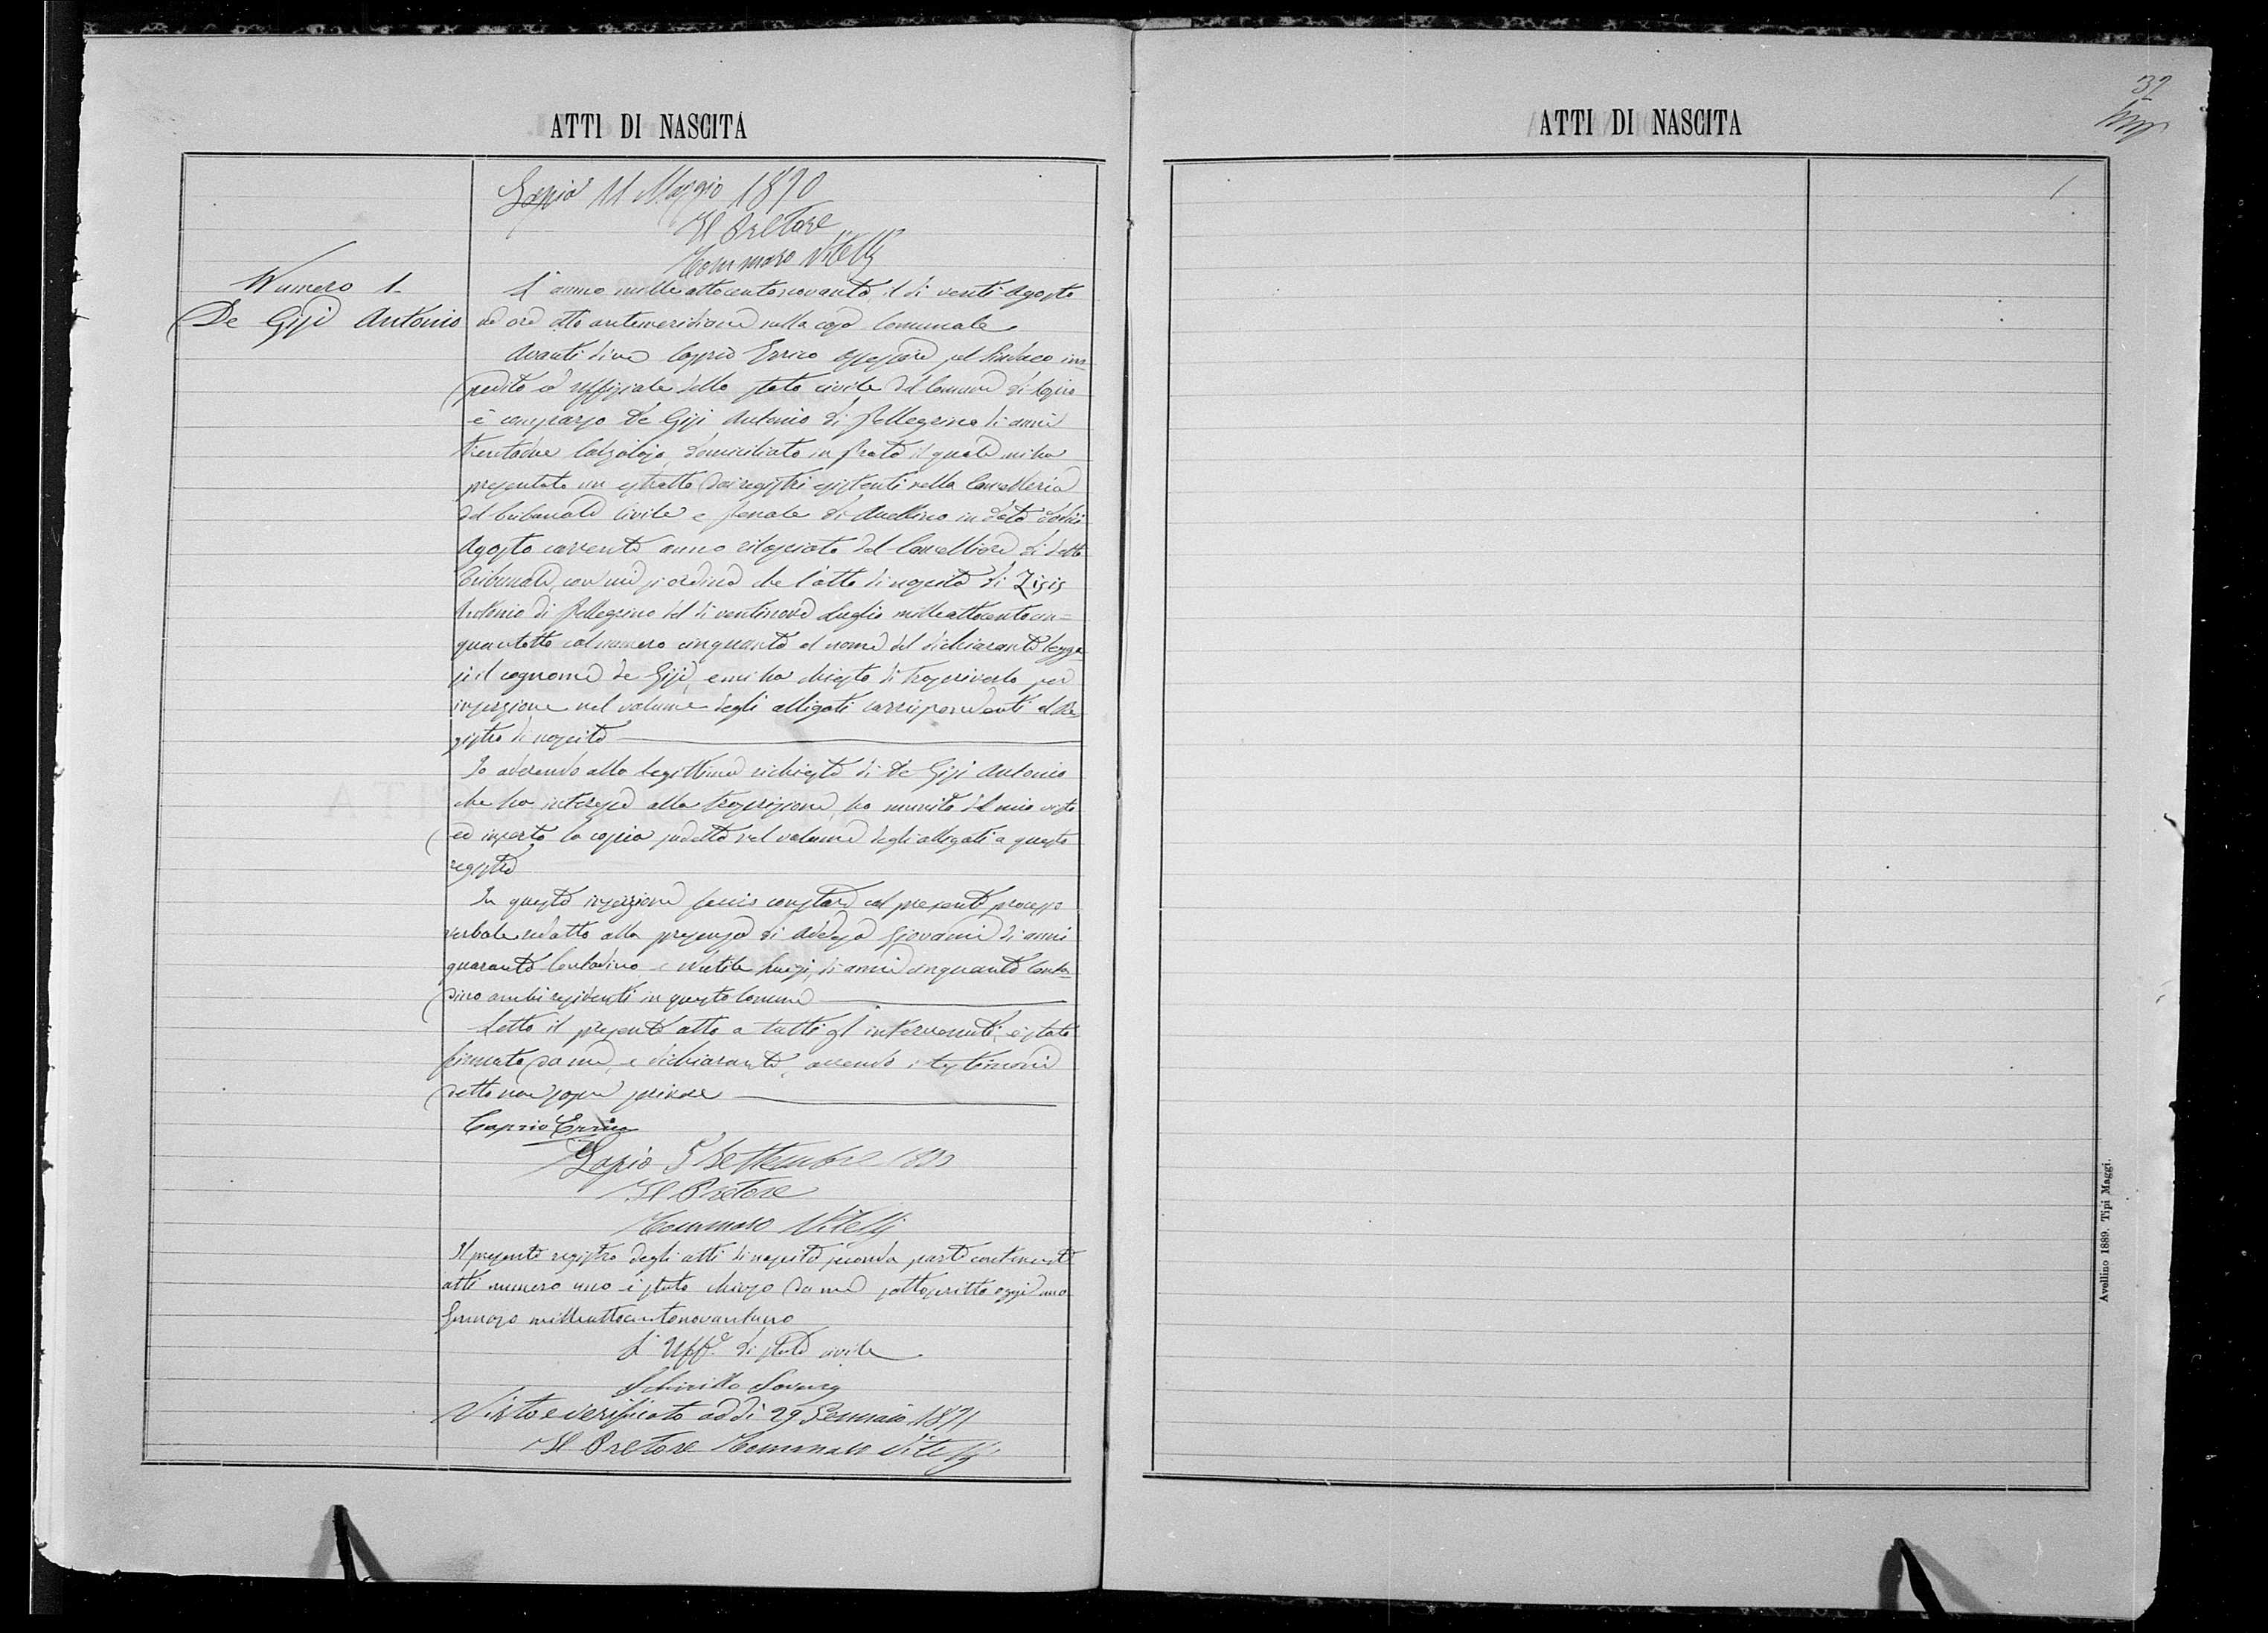 ATTI DI NASCITA
Lapio 11 Maggio 1890
Il Pretore
Tommaso Vitelli
Numero 1
De Gisi Antonio
L'anno milleottocentonovanta, il dì venti Agosto
ad ore otto antemeridiane nella casa Comunale
Avanti di me Caprio Errico Assessore pel Sindaco im-
pedito ed uffiziale dello stato civile del Comune di Lapio
è comparso De Gisi Antonio di Pellegrino di anni
trentadue Calzolajo, domiciliato in Prata il quale mi ha
presentato un estratto dai registri esistenti nella Cancelleria
del tribunale Civile e penale di Avellino in data dodici
Agosto corrente anno rilasciato dal Cancelliere di detto
tribunale, con cui si ordina che l'atto di nascita di Zisis
Antonio di Pellegrino del dì ventinove Luglio milleottocentocin=
quantotto al numero cinquanta al nome del dichiarante legga-
si il cognome de Gisi, e mi ha chiesto di trascriverlo per
inserzione nel volume degli alligati corrispondenti al Re-
gistro di nascita
Io aderendo alla legittima richiesta di De Gisi Antonio
che ha interesse alla trascrizione, ho munito del mio visto
ed inserto la copia sudetta nel volume degli allegati a questo
registro
Di questa inserzione faccio constare col presente processo
verbale redatto alla presenza di Addesa Giovanni di anni
quaranta Contadino e Luigi, di anni cinquanta Conta-
dino ambi residenti in questo Comune
Letto il presente atto a tutti gl'intervenuti, è stato
firmato da me, e dichiarante, avendo i testimoni
detto non saper scrivere
Caprio Errico
Lapio 5 Settembre 1890
Il Pretore
Tommaso Vitelli
Il presente registro degli atti di nascita seconda parte contenente
atti numero uno è stato chiuso da me sottoscritto oggi uno
Gennajo milleottocentonovantuno
L'Uff.e di stato civile
Visto e verificato addì 29 Gennaio 1891
Il Pretore Tommaso Vitelli
ATTI DI NASCITA
32
Avellino 1889. Tipi Maggi.